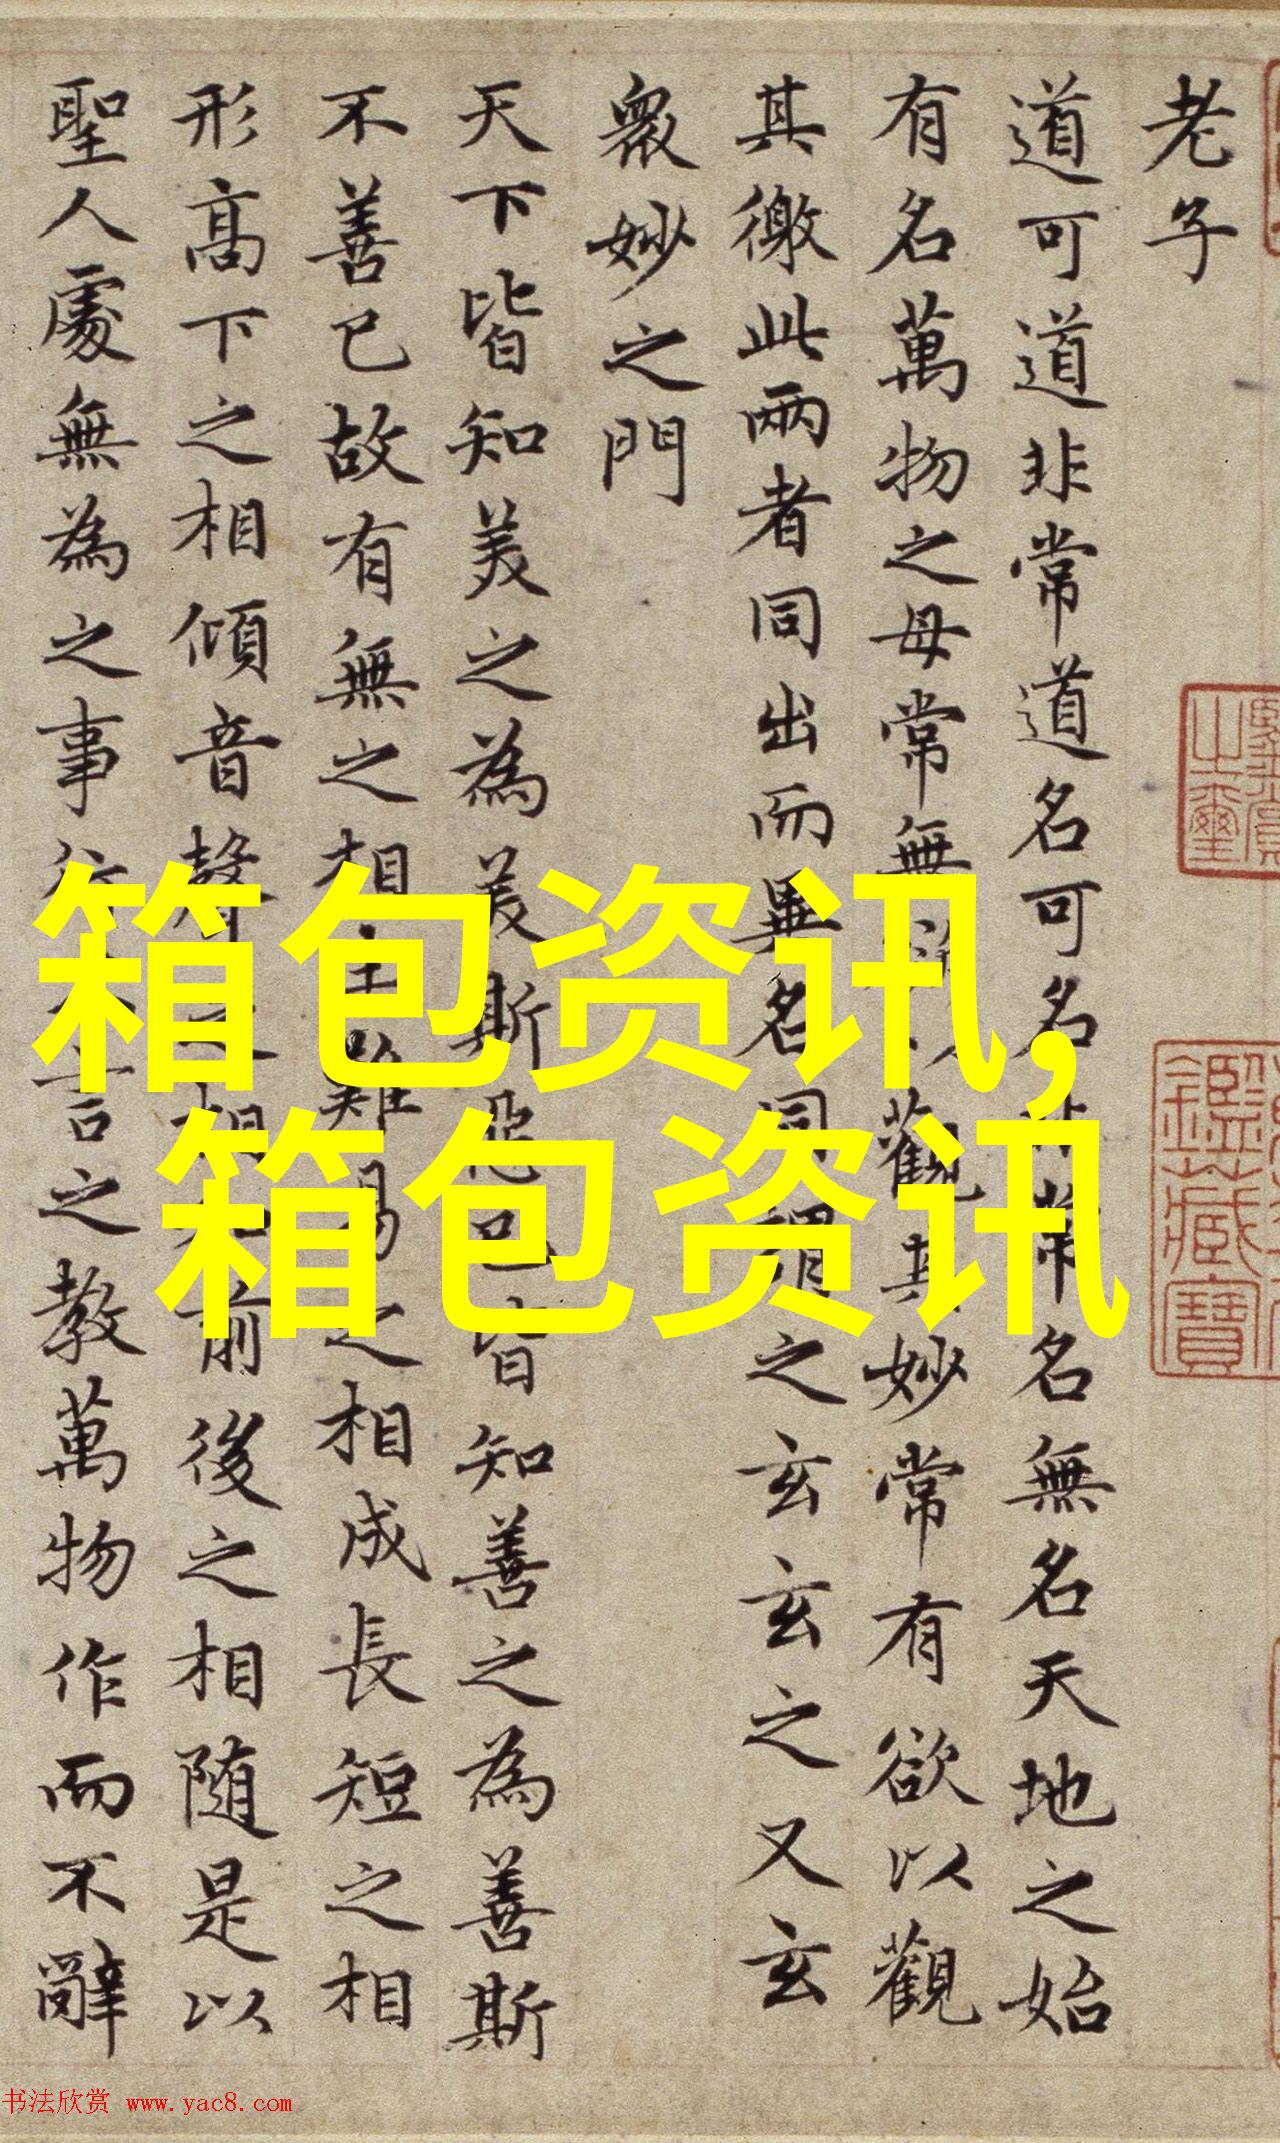 老子
道可道非常道名可名非常名無名天地之始
有名萬物之母常無欲以觀其妙常有欲以觀
其徼此兩者同出而異名同謂之玄玄之又玄
衆妙之門
天下皆知美之為美斯惡已皆知善之為善斯
不善已故有無之相生難易之相成長短之相
形高下之相傾音聲之相和前後之相随是以
聖人處無為之事行不言之教萬物作而不辭
箱包资讯,
箱包资讯
鑑藏寶
书法欣赏 www.yac8.com